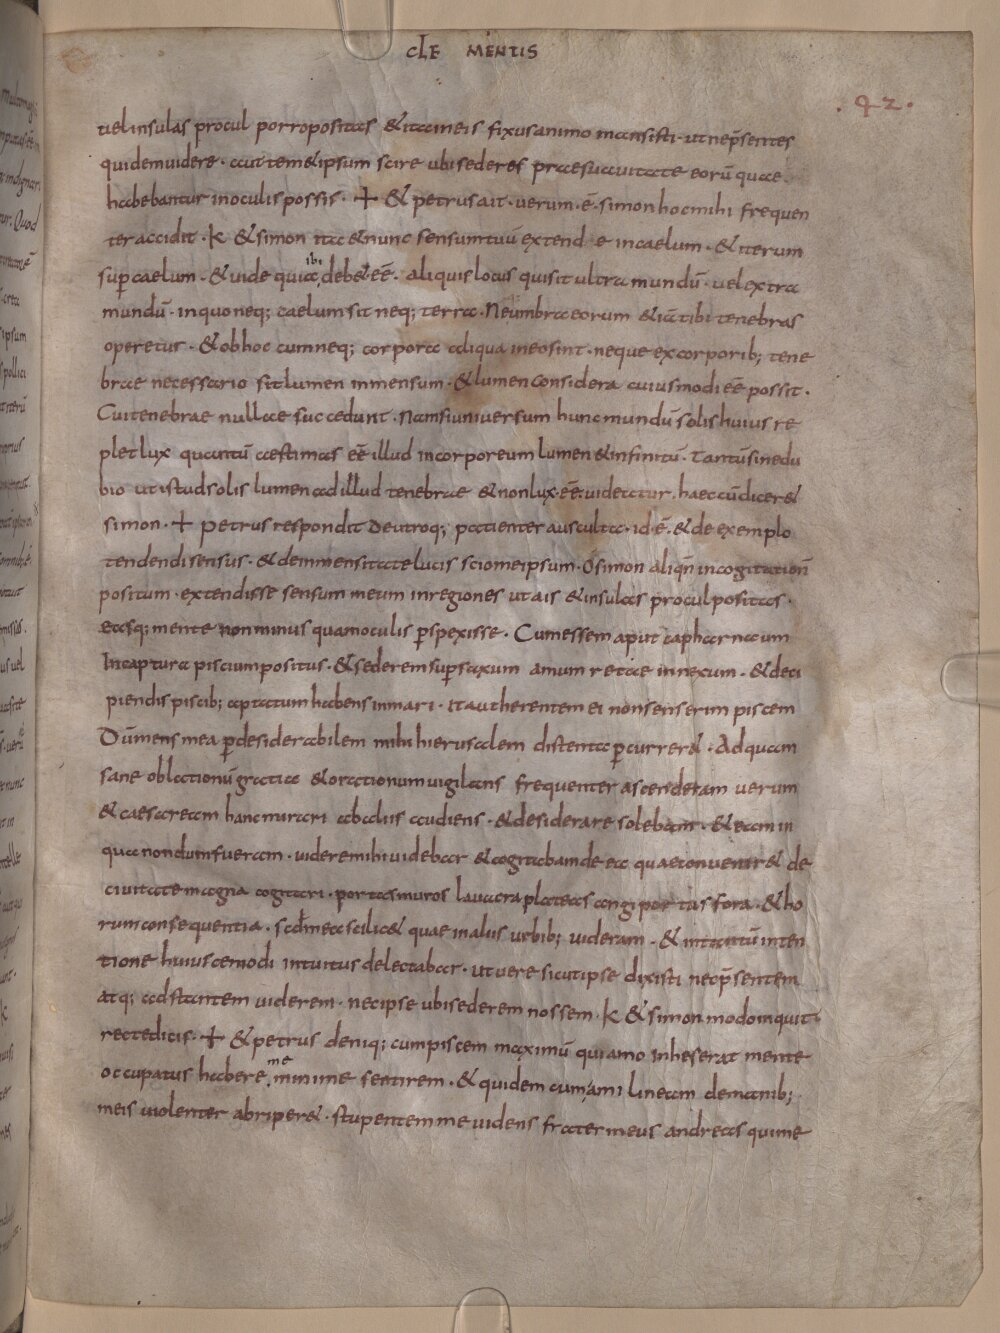 CLE MENTIS
.42.
uel insulas procul porro positas & ita in eis fixus animo mansisti. ut neq; p̄sentes
quidem uidere. aut temetipsum scire ubi sederes prae suauitate eorū quae
habebantur in oculis possis. + & petrus ait. uerum. ē. simon hoc mihi frequen
ter accidit. K & simon ita & nunc sensum tuū extende in caelum. & iterum
sup̄ caelum. & uide quia ibi deb& eē. aliquis locus qui sit ultra mundū. uel extra
mundū. in quo neq; caelum sit neq; terra. Ne umbra eorum &iā tibi tenebras
operetur. & ob hoc cum neq; corpora aliqua in eo sint. neque ex corporib; tene
brae necessario sit lumen inmensum. & lumen considera cuius modi eē possit.
Cui tenebrae nullae succedunt. nam si uniuersum hunc mundū solis huius re
plet lux quantū aestimas eē illud incorporeum lumen & infinitū. Tantū sine du
bio ut istud solis lumen ad illud tenebrae & non lux. eē. uideatur. haec cū dicer&
simon. + petrus respondit De utroq; patienter ausculta. id. ē. & de exemplo
tendendi sensus. & de inmensitate lucis scio me ipsum. O simon aliqn̄ in cogitationē
positum. extendisse sensum meum in regiones ut ais & insulas procul positas.
easq; mente non minus quam oculis p̄spexisse. Cum essem aput capharnaum
In captura piscium positus. & sederem sup̄ saxum amum r&ae innexum. & deci
piendis piscib; aptatum habens in mari. Ita ut herentem ei non senserim piscem
Dū mens mea p̄ desiderabilem mihi hierusalem distenta p̄currer&. Ad quam
sane oblationū gratia & orationum uigilans frequenter ascenderam uerum
& caesaream hanc mirari ab aliis audiens. & desiderare solebam. & eam in
qua nondum fueram. uidere mihi uidebar & cogitabam de ea quae conuenir& de
ciuitate magna cogitari. portas muros lauacra plateas angiportas fora. & ho
rum consequentia. scdm̄ ea scilic& quae in aliis urbib; uideram. & in tantū inten
tione huiuscemodi intuitus delectabar. ut uere sicut ipse dixisti nec p̄sentem
atq; adstantem uiderem. nec ipse ubi sederem nossem. K & simon modo inquit
recte dicis. + & petrus deniq; cum piscem maximū qui amo inheserat mente
occupatus habere me minime sentirem. & quidem cum ami lineam de manib;
meis uiolenter abriper&. stupentem me uidens frater meus andreas qui me